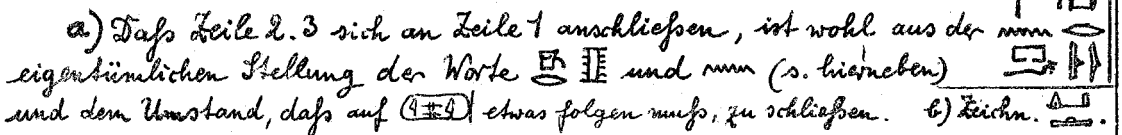 a) Daß Zeile 2.3 sich an Zeile 1 anschließen, ist wohl aus der
eigentümlichen Stellung der Worte und (s. hierneben)
und dem Umstand, daß auf etwas folgen muß, zu schließen. b) Zeichn.